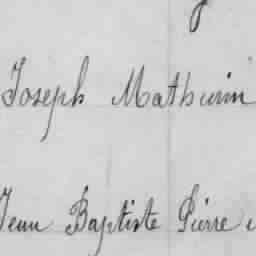 Joseph Mathurin
Jean Baptiste Pierre